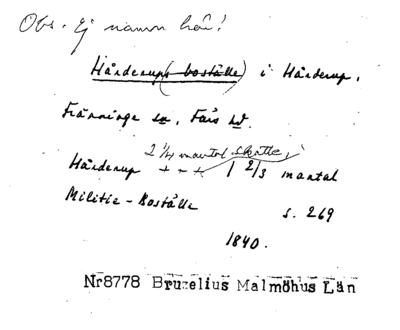 Obs. Ej namn här!
Hårderup (boställe) i Hårderup,
Fränninge sn, Färs hd.
2 1/4 mantal skatte,
Hårderup + + + 1 2/3 mantal
Militie-Boställe s. 269
1840.
Nr8778 Bruzelius Malmöhus Län